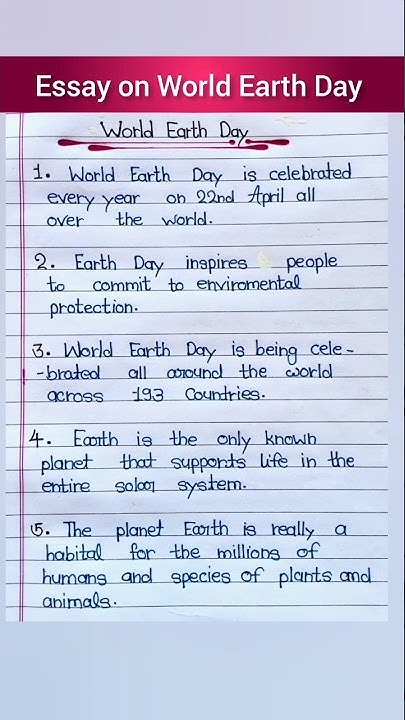 Essay on World Earth Day
World Earth Day
1. World Earth Day is celebrated
every year on 22nd April all
over the world.
2. Earth Day inspires people
to commit to enviromental
protection.
3. World Earth Day is being cele-
-brated all around the world
across 193 Countries.
4. Earth is the only known
planet that supports life in the
entire solar system.
5. The planet Earth is really a
habital for the millions of
humans and species of plants and
animals.